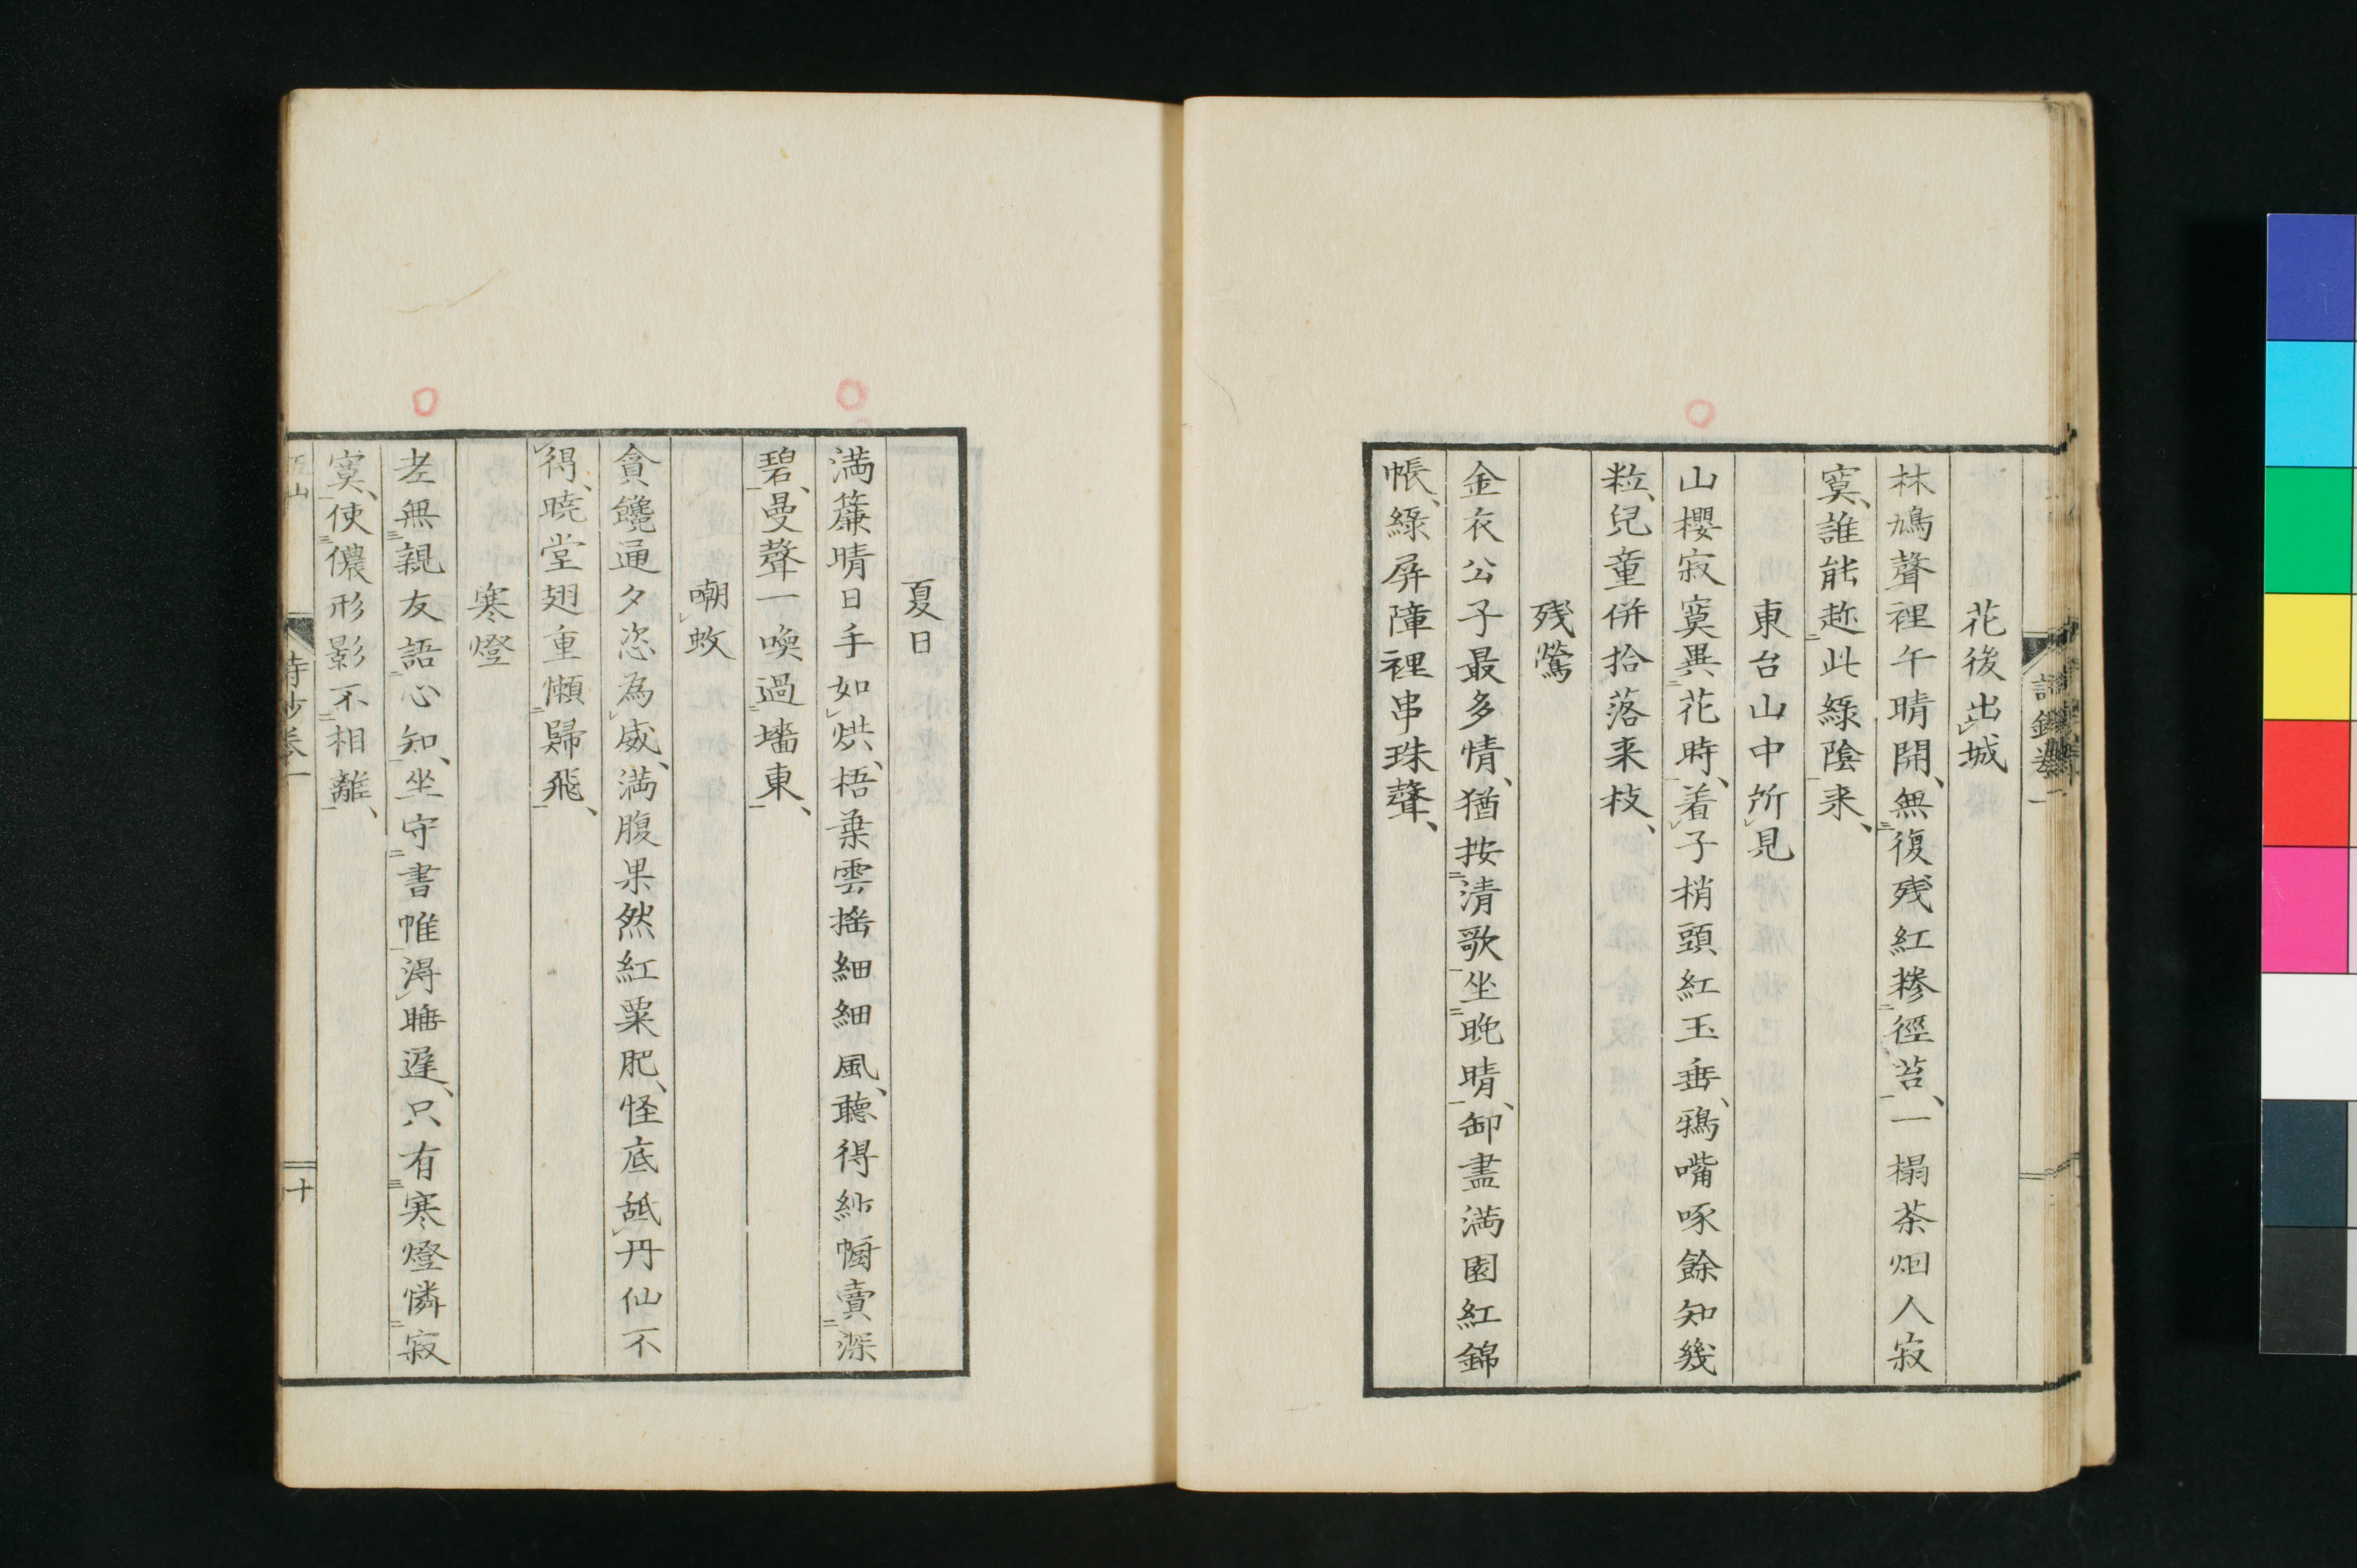 花後出城
林鳩聲裡午晴開、無復残紅糝徑苔、一榻茶烟人寂
寞、誰能趂此綠陰来、
東台山中所見
山櫻寂寞異花時、着子梢頭紅玉垂、鴉嘴啄餘知幾
粒、兒童併拾落来枝、
残鶯
金衣公子最多情、猶按清歌坐晚晴、卸盡満園紅錦
帳、綠屏障裡串珠聲、
夏日
満簾晴日手如烘、梧葉雲搖細細風、聽得紗幮賣深
碧、曼聲一喚過墻東、
嘲蚊
貪饞通夕恣為威、満腹果然紅粟肥、怪底舐丹仙不
得、曉堂翅重懶歸飛、
寒燈
老無親友語心知、坐守書帷得睡遲、只有寒燈憐寂
寞、使儂形影不相離、
詩鈔卷一
十